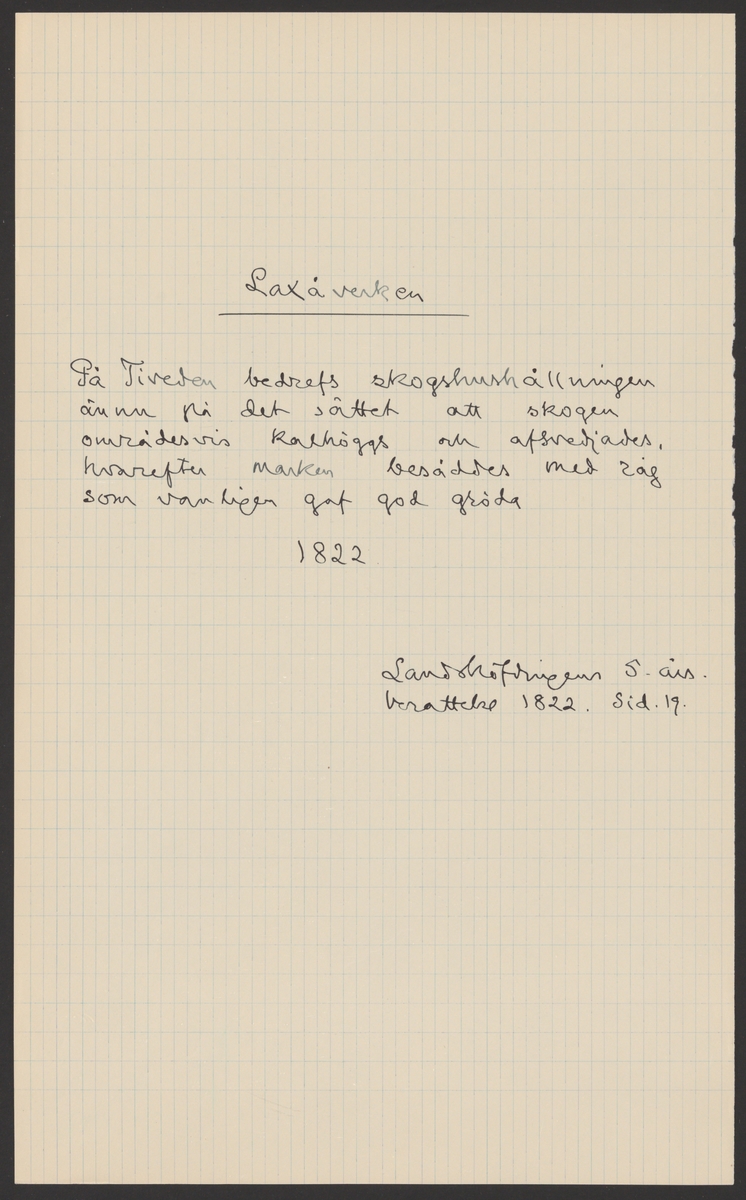 Laxåverken
På Tiveden bedrefs skogshushållningen
ännu på det sättet att skogen
områdesvis kalhöggs och afsvedjades,
hvarefter marken besåddes med råg
som vanligen gaf god gröda
1822
Landshöfdingens 5-års.
berättelse 1822. Sid. 19.